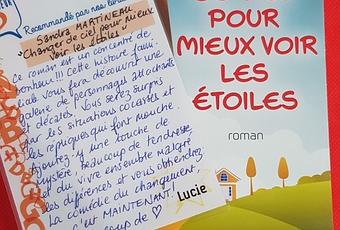 Recommandé par nos
Sandra MARTINEAU
Changer de ciel pour mieux
voir les étoiles
Ce roman est un concentré de
bonheur!!! Cette histoire
vous fera découvrir une
galerie de personnages attachants
et décalés. Vous serez surpris
par les situations cocasses et
les répliques qui font mouche.
Ajoutez-y une touche de
mystère, beaucoup de tendresse
et du vivre ensemble malgré
les différences et vous obtiendrez
La comédie du changement,
c'est MAINTENANT!
coup de ♡
Lucie
POUR
MIEUX VOIR
LES
ÉTOILES
roman